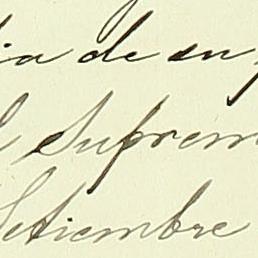 ia de su
Suprem
Setiembre